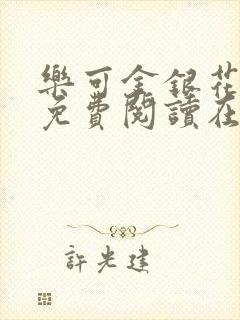 樂可金銀花
免費閱讀在
許光建